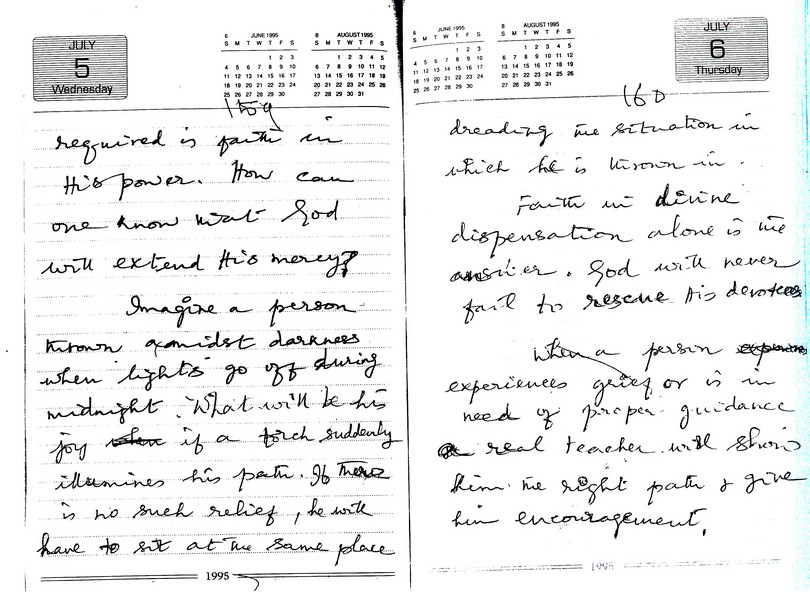 JULY
5
Wednesday
6 JUNE 1995
S M T W T F S
1 2 3
4 5 6 7 8 9 10
11 12 13 14 15 16 17
18 19 20 21 22 23 24
25 26 27 28 29 30
8 AUGUST 1995
S M T W T F S
1 2 3 4 5
6 7 8 9 10 11 12
13 14 15 16 17 18 19
20 21 22 23 24 25 26
27 28 29 30 31
159
required is faith in
His power. How can
one know that God
will extend His mercy?
Imagine a person
thrown amidst darkness
when 'lights' go off during
midnight. What will be his
joy when if a torch suddenly
illumines his path. If there
is no such relief, he will
have to sit at the same place
1995
6 JUNE 1995
S M T W T F S
1 2 3
4 5 6 7 8 9 10
11 12 13 14 15 16 17
18 19 20 21 22 23 24
25 26 27 28 29 30
8 AUGUST 1995
S M T W T F S
1 2 3 4 5
6 7 8 9 10 11 12
13 14 15 16 17 18 19
20 21 22 23 24 25 26
27 28 29 30 31
JULY
6
Thursday
160
dreading the situation in
which he is thrown in.
Faith in divine
dispensation alone is the
answer. God will never
fail to rescue His devotees
When a person
experiences grief or is in
need of proper guidance
a real teacher will show
him the right path & give
him encouragement.
1995